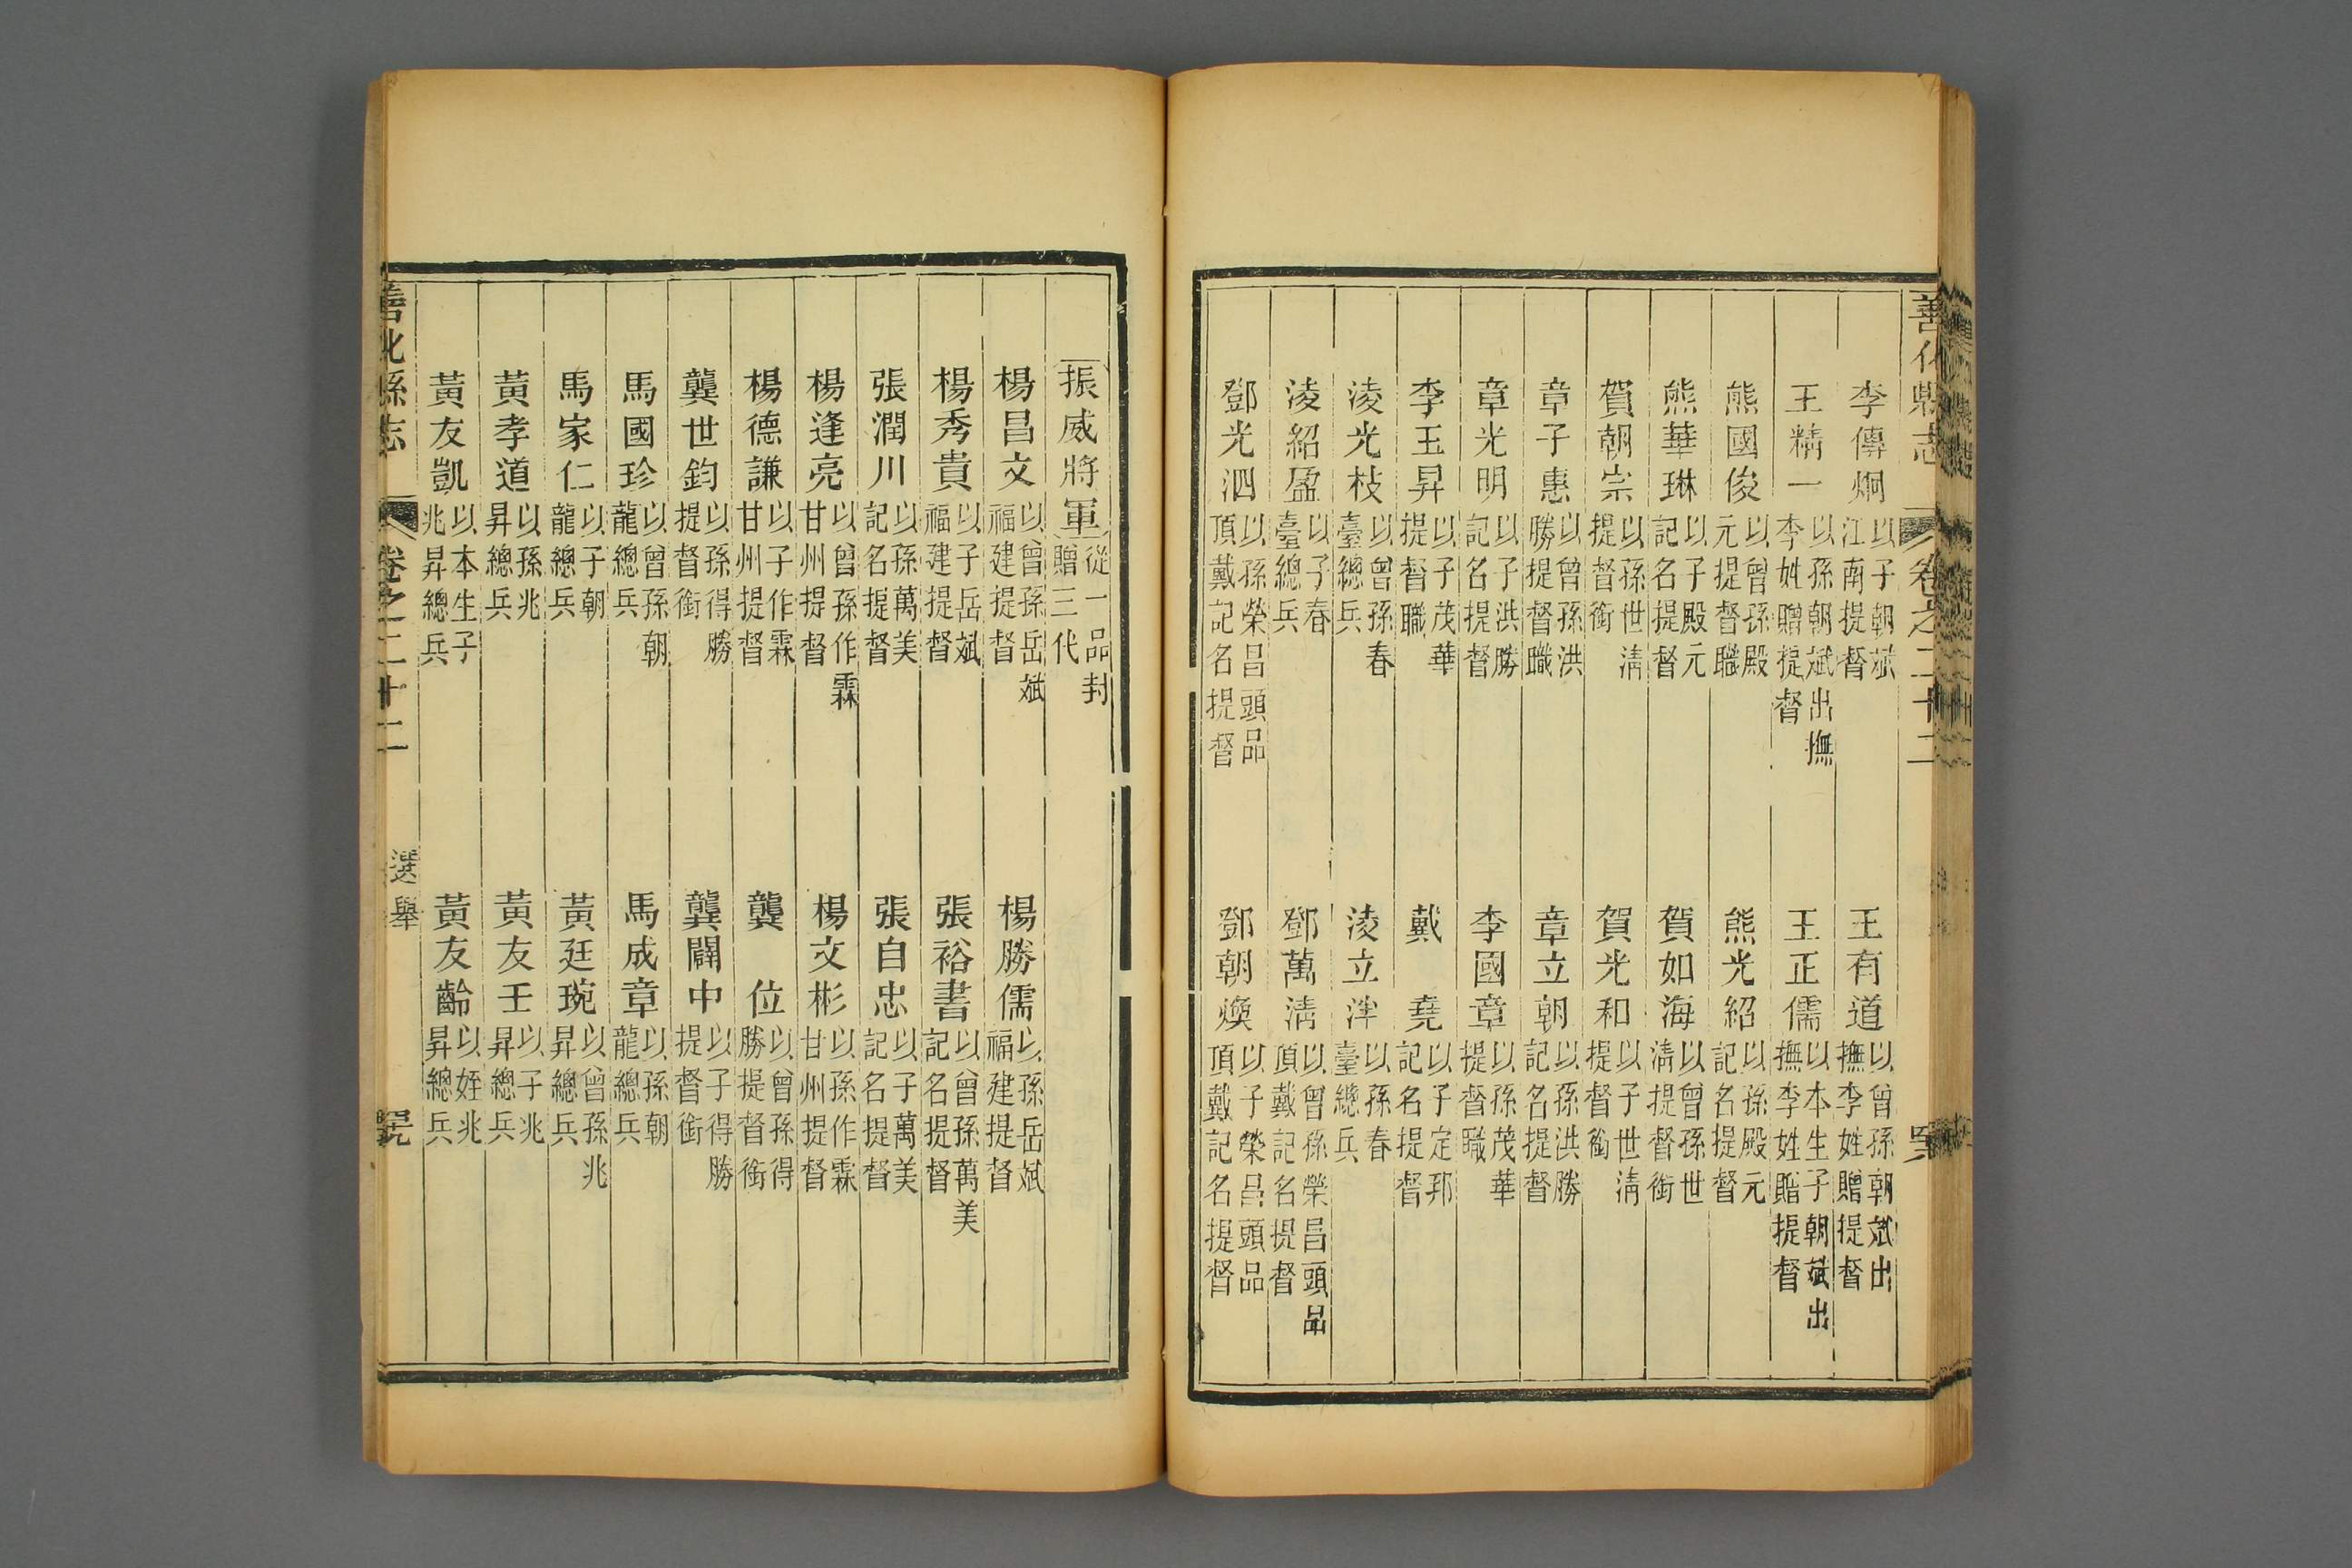 善化縣志 卷之二十二
李傳炯 以子朝斌江南提督 王有道 以曾孫朝斌出撫李姓贈提督
王精一 以孫朝斌出撫李姓贈提督 王正儒 以本生子朝斌出撫李姓贈提督
熊國俊 以曾孫殿元提督職 熊光紹 以孫殿元記名提督
熊華琳 以子殿元記名提督 賀如海 以曾孫世清提督銜
賀朝宗 以孫世清提督銜 賀光和 以子世清提督銜
章子惠 以曾孫洪勝提督職 章立朝 以孫洪勝記名提督
章光明 以子洪勝記名提督 李國章 以孫茂華提督職
李玉昇 以子茂華提督職 戴堯 以子定邦記名提督
淩光枝 以曾孫春臺總兵 淩立泮 以孫春臺總兵
淩紹盈 以子春臺總兵 鄧萬清 以曾孫榮昌頭品頂戴記名提督
鄧光泗 以孫榮昌頭品頂戴記名提督 鄧朝煥 以子榮昌頭品頂戴記名提督
振威將軍 從一品封贈三代
楊昌文 以曾孫岳斌福建提督 楊勝儒 以孫岳斌福建提督
楊秀貴 以子岳斌福建提督 張裕書 以曾孫萬美記名提督
張潤川 以孫萬美記名提督 張自忠 以子萬美記名提督
楊逢亮 以曾孫作霖甘州提督 楊文彬 以孫作霖甘州提督
楊德謙 以子作霖甘州提督 龔位 以曾孫得勝提督銜
龔世鈞 以孫得勝提督銜 龔闢中 以子得勝提督銜
馬國珍 以曾孫朝龍總兵 馬成章 以孫朝龍總兵
馬家仁 以子朝龍總兵 黃廷琬 以曾孫兆昇總兵
黃孝道 以孫兆昇總兵 黃友王 以子兆昇總兵
黃友凱 以本生子兆昇總兵 黃友齡 以姪兆昇總兵
善化縣志 卷之二十二 選舉